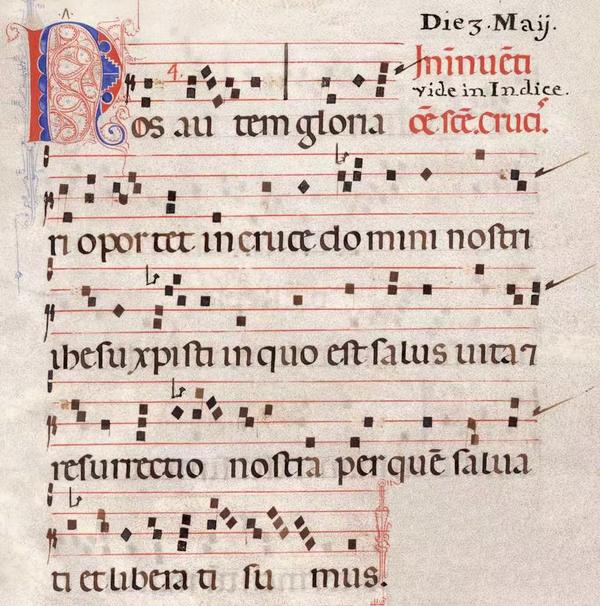 .A.
Die 3. Maij.
4.
Jn inuēti
vide in Indice.
Nos au tem gloria
oē scē. cruci's.
ri opor tet in cruce do mini nostri
ihesu xpisti in quo est salus uita 7
resurrectio nostra per quē salua
ti et libera ti su mus.